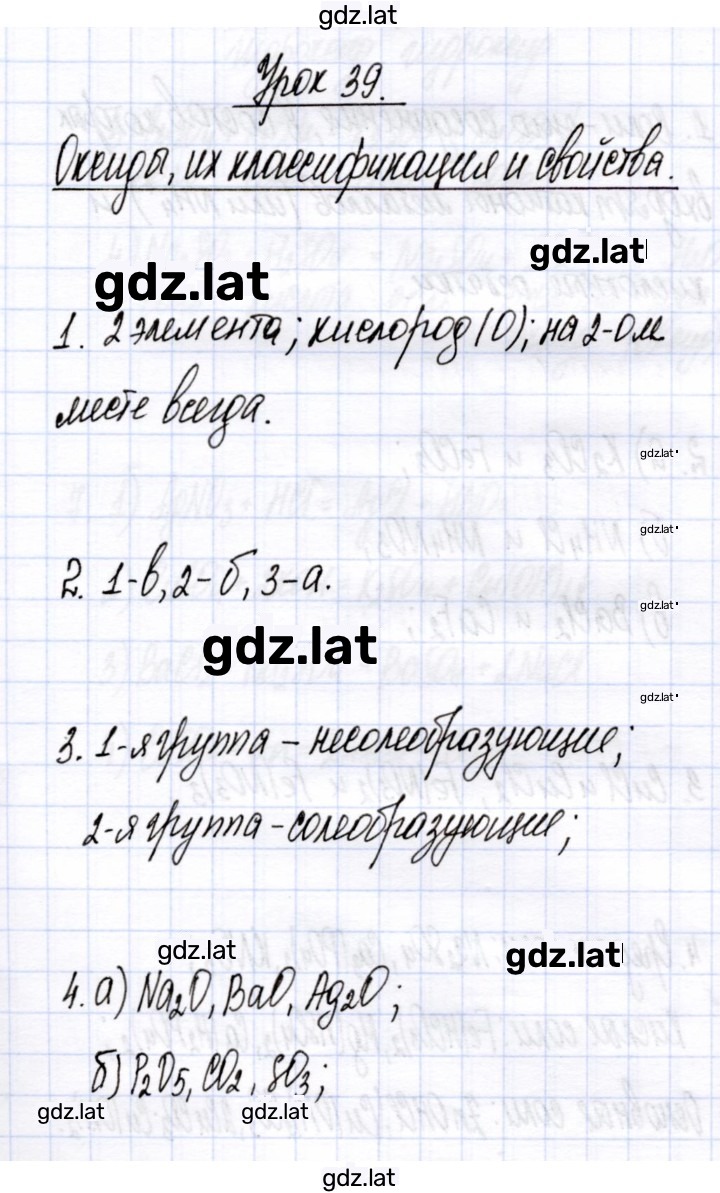 gdz.lat
Урок 39.
Оксиды, их классификация и свойства.
gdz.lat
gdz.lat
1. 2 элемента; кислород (O); на 2-ом
месте всегда.
gdz.lat
gdz.lat
2. 1-в, 2-б, 3-а.
gdz.lat
gdz.lat
gdz.lat
3. 1-я группа – несолеобразующие;
2-я группа – солеобразующие;
gdz.lat
gdz.lat
4. а) Na2O, BaO, Ag2O;
б) P2O5, CO2, SO3;
gdz.lat
gdz.lat
gdz.lat